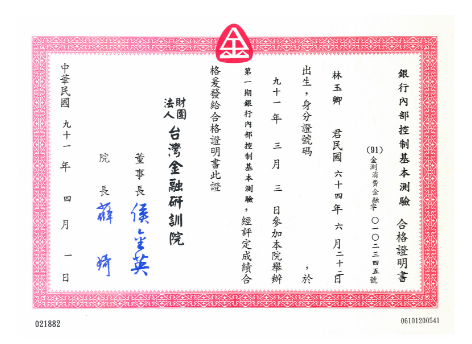 金
銀行內部控制基本測驗 合格證明書
(91)金測消費金融字〇一〇二三四五號
林玉卿 君民國 六十四年 六 月二十二日
出生，身分證號碼 ，於
九十一 年 三 月 三 日參加本院舉辦
第一期銀行內部控制基本測驗，經評定成績合
格爰發給合格證明書此證
財團法人 台灣金融研訓院
董事長 侯金英
院 長 薛琦
中華民國 九十一 年 四 月 一 日
021882
06101200541